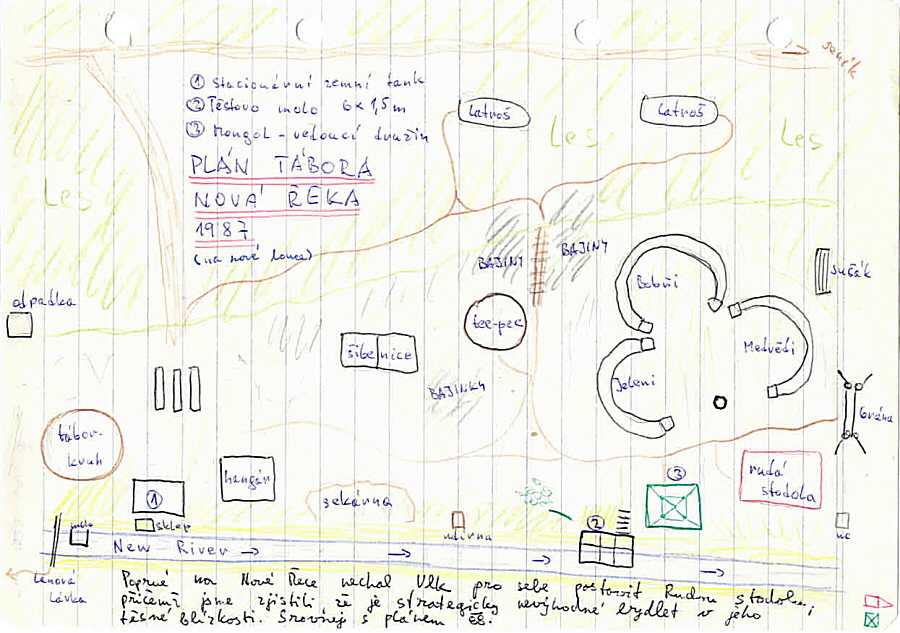 seník
① Stacionární zemní tank
② Těstovo molo 6 x 1,5 m
③ Mongol - vedoucí družin
PLÁN TÁBORA
NOVÁ ŘEKA
1987
(na nové louce)
Latroš
Latroš
Les
Les
Les
BAJINY
BAJINY
sušák
Bobři
odpadka
tee-pee
šibenice
Medvědi
Jeleni
BAJINKY
brána
tábor.
kruh
hangár
rudá
stodola
①
sekárna
③
molo
sklep
②
New River
lanová
lávka
Poprvé na Nové Řece nechal Vlk pro sebe postavit Rudou stodolu,
přičemž jsme zjistili že je strategicky nevýhodné bydlet v jeho
těsné blízkosti. Srovnej s plánem